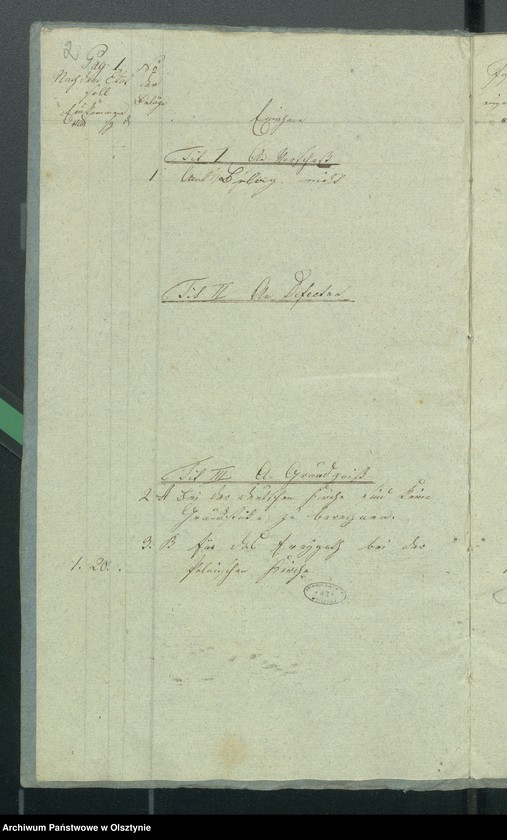 2
Pag. 1.
Nach dem Etat
soll
einkommen
No
der
Beläge
Einnahme
Tit I. An Vorschuß
1 nicht
Tit II An Defecten
Tit III An Grundzins
2 A Bei der deutschen Kirche sind keine
Grundstücke zu berechnen.
3. B für das bei der
1. 20. polnischen Kirche
Archiwum Państwowe w Olsztynie